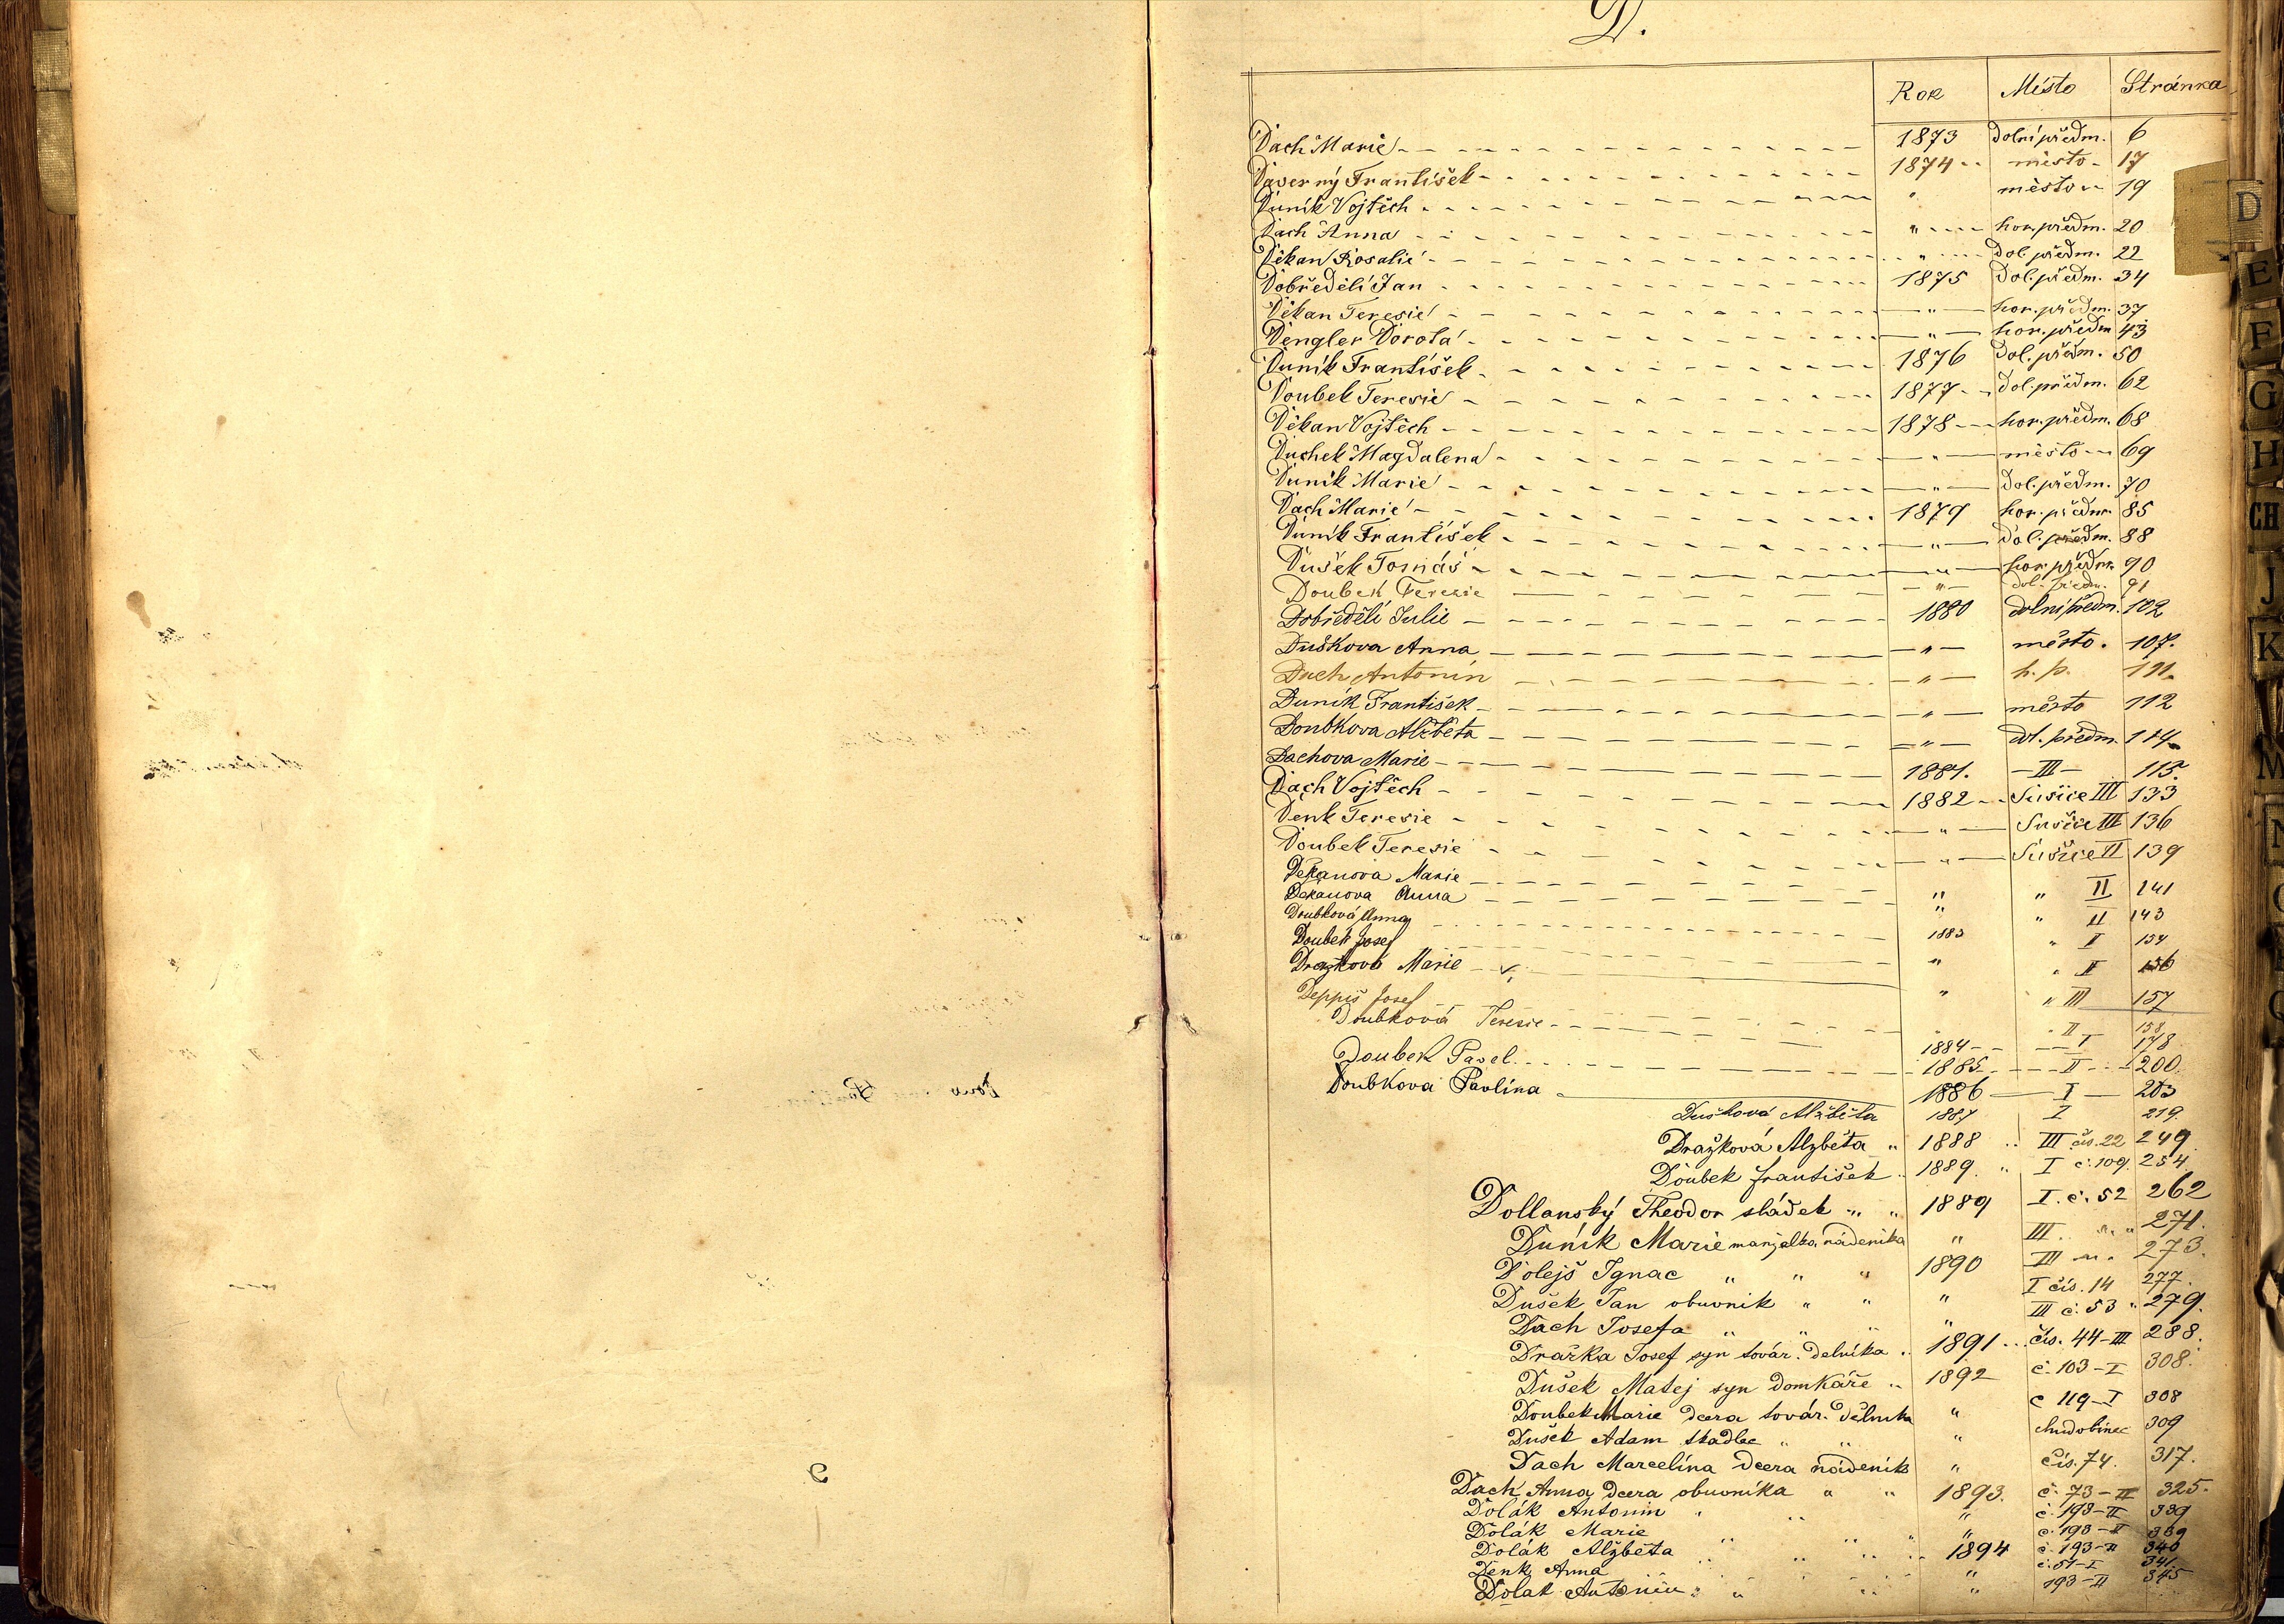 D.
Rok Místo Stránka
Dach Marie 1873 dolní předm. 6
Daverný František 1874 město 17
Duník Vojtěch " město 19
Dach Anna " hor. předm. 20
Děkan Rosalie " dol. předm. 22
Dobředěli Jan 1875 dol. předm. 34
Děkan Teresie " hor. předm. 37
Dengler Dorota " hor. předm 43
Duník František 1876 dol. předm. 50
Doubek Teresie 1877 dol. předm. 62
Děkan Vojtěch 1878 hor. předm. 68
Duchek Magdalena " město 69
Duník Marie " dol. předm. 70
Dach Marie 1879 hor. předm. 85
Duník František " dol. předm. 88
Dušek Tomáš " hor. předm. 90
Doubek Teresie " dol. předm. 91
Dobředělí Julie 1880 dolní předm. 102
Duškova Anna " město. 107.
Dach Antonín " h. p. 111.
Duník František " město 112
Doubkova Alžběta " dol. předm. 114
Dachova Marie 1881. III 115.
Dach Vojtěch 1882 Sušice III 133
Denk Teresie " Sušice III 136
Doubek Teresie " Sušice II 139
Děkanova Marie " " II 141
Děkanova Anna " " II 143
Doubková Anna 1883 " I 154
Doubek Josef " " II 156
Dražková Marie " " III 157
Deppiš Josef " II 158
Doubková Teresie 1884 I 178
Doubek Pavel 1885 II 200.
Doubkova Pavlina 1886 I 203
Dušková Alžběta 1887 I 219.
Dražková Alzběta " 1888 " III čís. 22 249
Doubek František " 1889. " I č. 109. 254.
Dollanský Theodor sládek " " 1889 I. č. 52 262
Duník Marie manželka nádeníka " III. " " 271.
Dolejš Ignac " " " 1890 III " " 273.
Dušek Jan obuvník " " " I čís. 14 277.
Dach Josefa " " " " III č. 53 " 279.
Dražka Josef syn továr. delníka " 1891 čís. 44-III 288.
Dušek Matej syn domkáře " 1892 č. 103-I 308.
Doubek Marie dcera továr. dělníka " č 119-I 308
Dušek Adam tkadlec " " " chudobinec 309
Dach Marcelina dcera nádeník " Čís. 74. 317.
Dach Anna dcera obuvníka " " 1893. č. 73-II 325.
Dolák Antonin " " " č. 193-II 339
Dolák Marie " " " " č. 193-II 339
Dolák Alžběta " " " " 1894 č. 193-II 340
Denk Anna " č. 51-I 341.
Dolak Antonin " " " " 193-II 345
D
E
F
G
H
CH
J
K
M
N